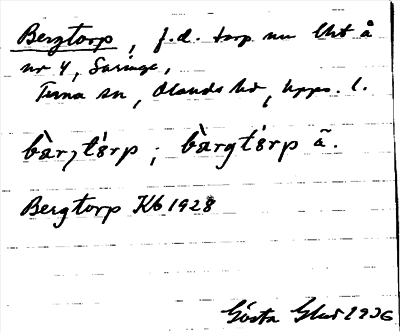 Bergtorp, f.d. torp nu lht å
nr 4, Saringe,
Tuna sn, Olands hd, Upps. l.
bàrjtɷ́rp ; bàrgtɷ́rp ã.
Bergtorp Kb 1928
Gösta 1936